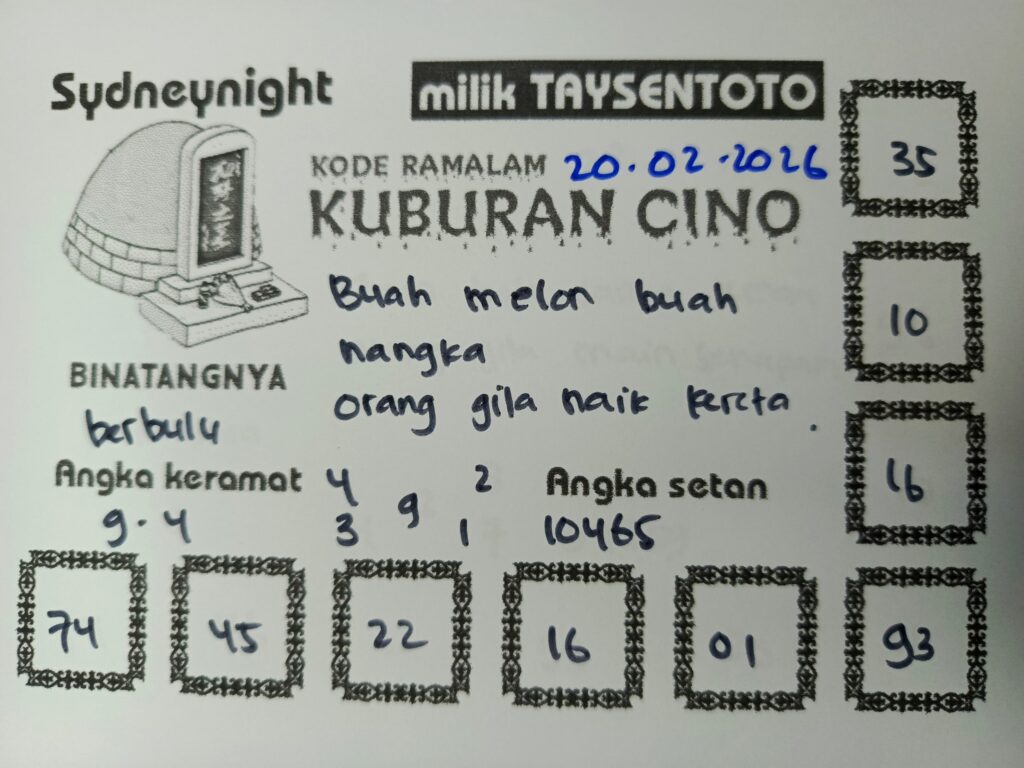 Sydneynight
milik TAYSENTOTO
KODE RAMALAM 20.02.2026
KUBURAN CINO
Buah melon buah
nangka
orang gila naik kereta.
BINATANGNYA
berbulu
Angka keramat
9.4
4 2
9
3 1
Angka setan
10465
35
10
16
74 45 22 16 01 93